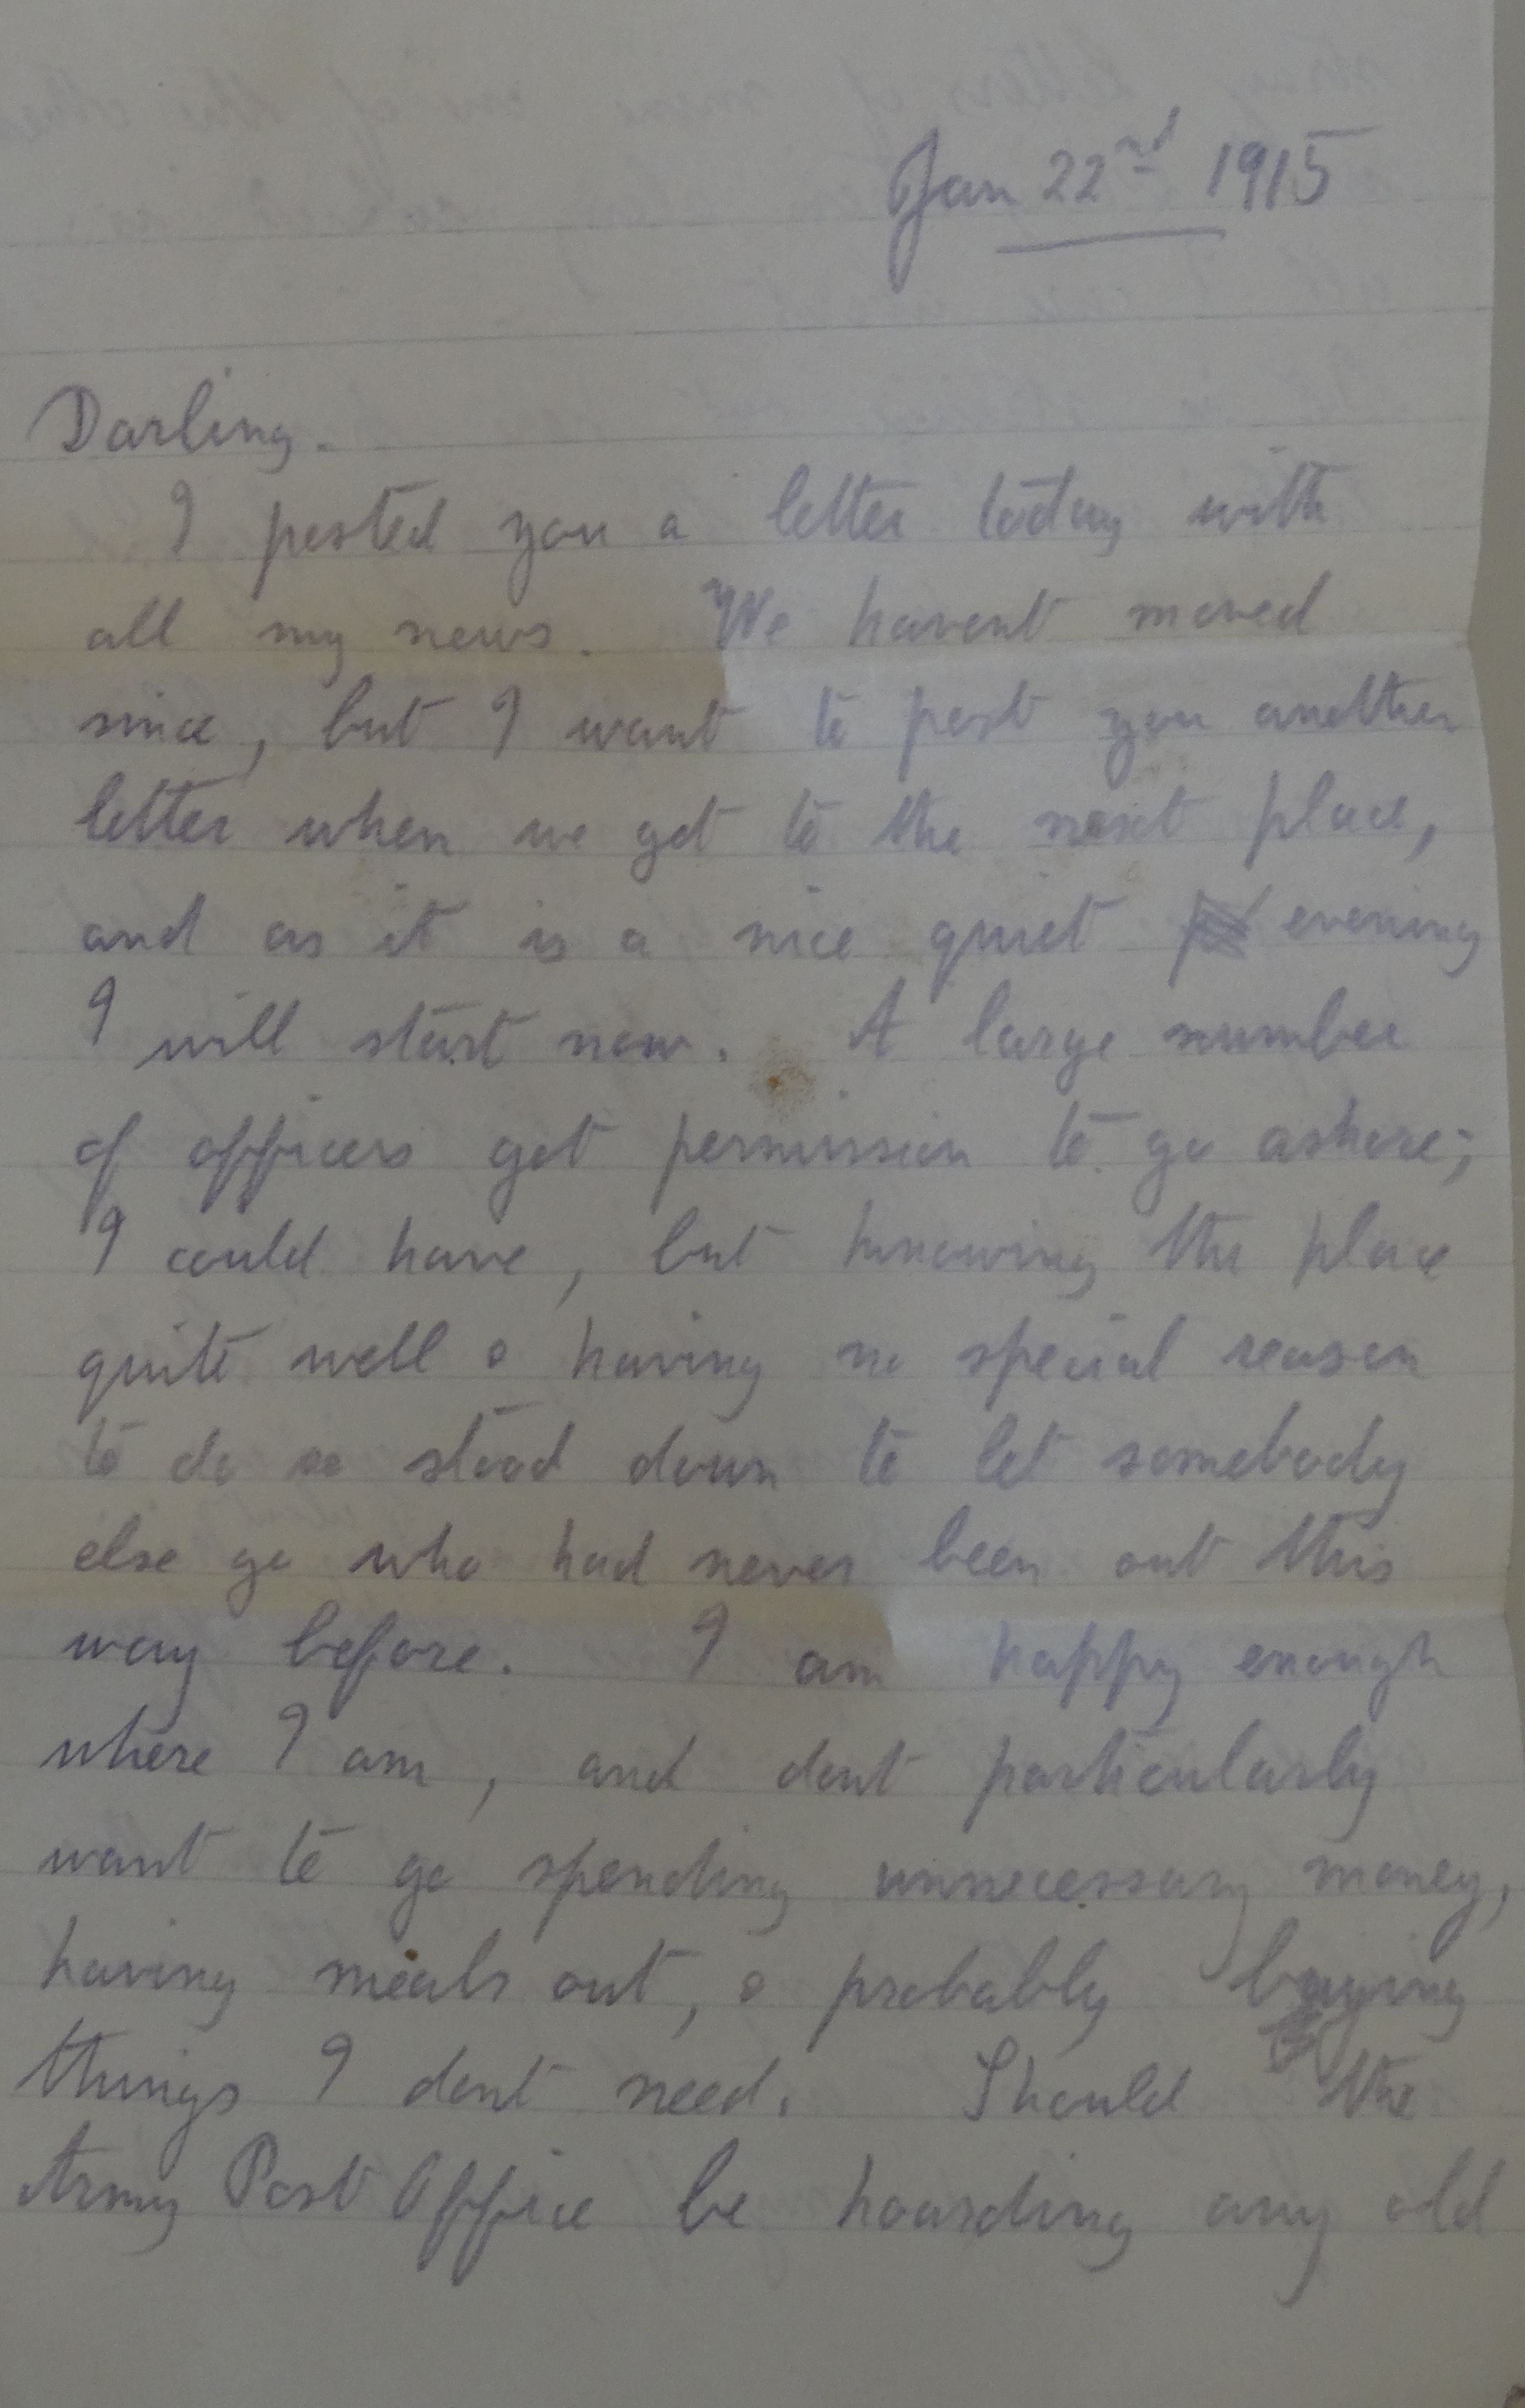 Jan 22nd 1915
Darling.
I posted you a letter today with
all my news. We havent moved
since, but I want to post you another
letter when we get to the next place,
and as it is a nice quiet evening
I will start now. A large number
of officers got permission to go ashore;
I could have, but knowing the place
quite well & having no special reason
to do so stood down to let somebody
else go who had never been out this
way before. I am happy enough
where I am, and dont particularly
want to go spending unnecessary money,
having meals out, & probably buying
things I dont need. Should the
Army Post Office be hoarding any old